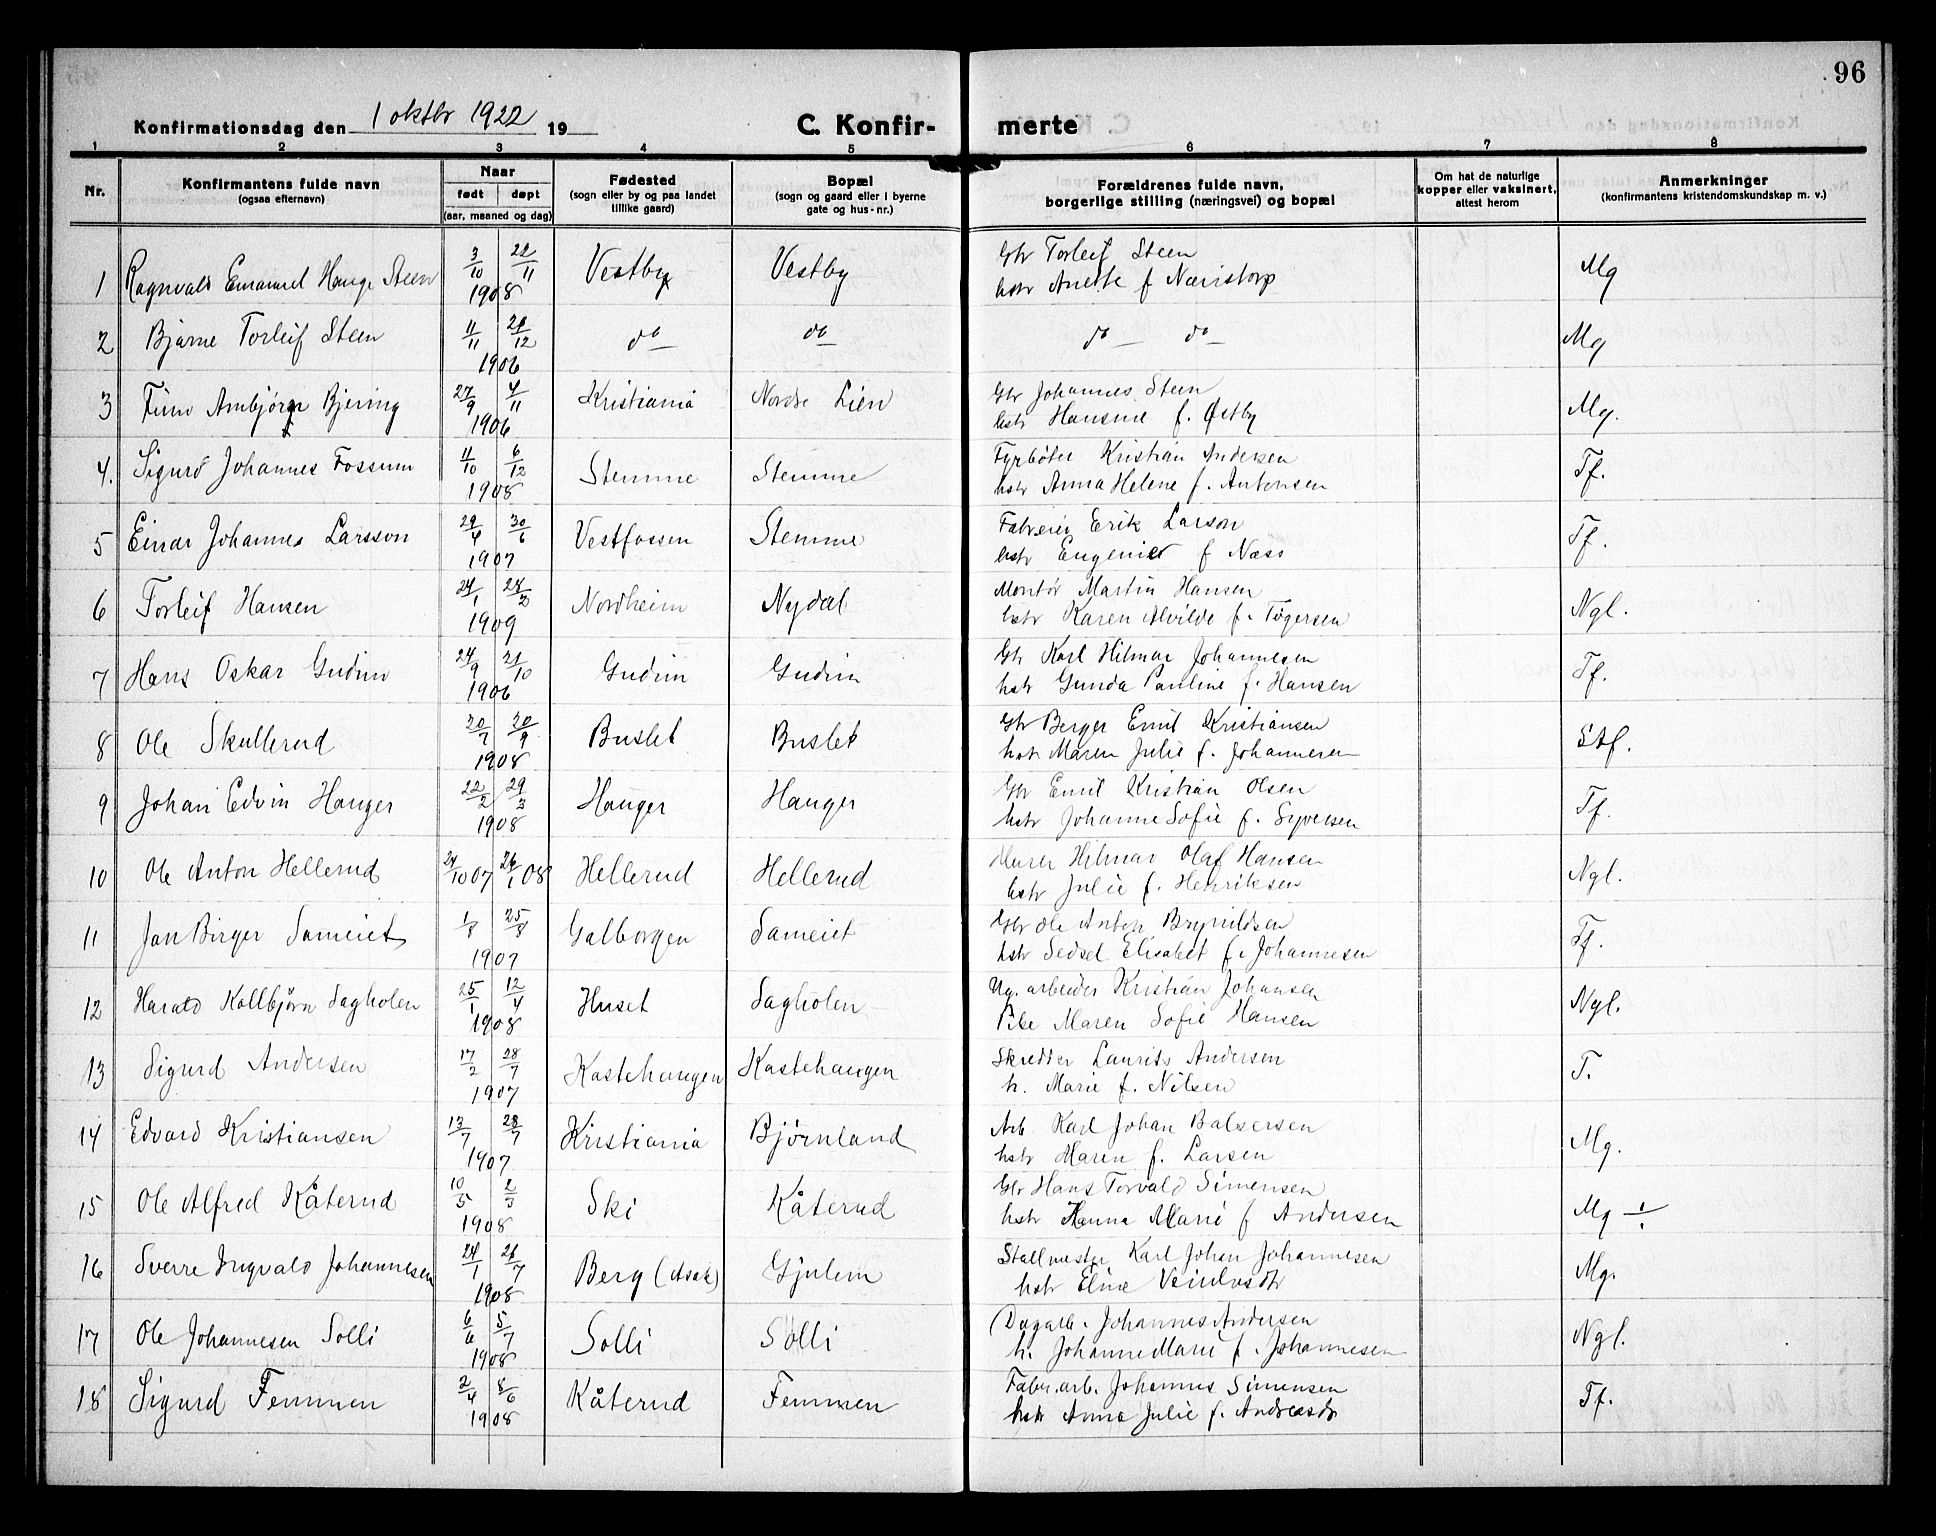 96
Konfirmationsdag den 1 oktbr 1922 19
C. Konfir-merte
1 2 3 4 5 6 7 8
Nr.
Konfirmantens fulde navn
(ogsaa efternavn)
Naar
født døpt
(aar, maaned og dag)
Fødested
(sogn eller by og paa landet
tillike gaard)
Bopæl
(sogn og gaard eller i byerne
gate og hus-nr.)
Forældrenes fulde navn,
borgerlige stilling (næringsvei) og bopæl
Om hat de naturlige
kopper eller vaksinert,
attest herom
Anmerkninger
(konfirmantens kristendomskundskap m. v.)
1 Ragnvald Emanuel Hauge Steen 3/10 22/11 1908 Vestby Vestby Gbr Torleif Steen
hstr Anette f Næristorp Mg
2 Bjarne Torleif Steen 11/11 29/12 1906 do do do do Mg
3 Finn Arnbjørn Bjering 27/9 4/11 1906 Kristiania Nordre Lien Gbr Johannes Steen
hstr Hansine f. Østby Mg.
4. Sigurd Johannes Fossum 11/10 6/12 1908 Stemme Stemme Fyrbøter Kristian Andersen
hstr Anna Helene f. Antonsen Tf.
5 Einar Johannes Larsson 29/4 30/6 1907 Vestfossen Stemme Fabreier Erik Larson
hstr Eugenie f Næss Tf.
6 Torleif Hansen 24/1 28/3 1909 Nordheim Nydal Montør Martin Hansen
hstr Karen Alvilde f. Tøgersen Ngl.
7 Hans Oskar Gudim 24/9 21/10 1906 Gudim Gudim Gbr Karl Hilmar Johannesen
hstr Gunda Pauline f. Hansen Tf.
8 Ole Skullerud 20/7 20/9 1908 Buslet Buslet Gbr Berger Emil Kristiansen
hstr Maren Julie f. Johannesen Stf.
9 Johan Edvin Hauger 22/2 29/3 1908 Hauger Hauger Gbr Emil Kristian Olsen
hstr Johanne Sofie f. Syversen Tf.
10 Ole Anton Hellerud 24/10 07 26/1 08 Hellerud Hellerud Murer Hilmar Olaf Hansen
hstr Julie f. Henriksen Ngl.
11 Jan Birger Sameiet 1/8 25/8 1907 Galborgen Sameiet Gbr Ole Anton Brynildsen
hstr Sedsel Elisabet f. Johannesen Tf.
12 Harald Kollbjørn Sagholen 25/1 12/4 1908 Huset Sagholen Ug. arbeider Kristian Johansen
Pike Maren Sofie Hansen Ngl.
13 Sigurd Andersen 17/2 28/7 1907 Kastehaugen Kastehaugen Skredder Laurits Andersen
h. Marie f. Nilsen T.
14 Edvard Kristiansen 13/7 28/7 1907 Kristiania Bjørnland Arb. Karl Johan Balsersen
hstr Maren f. Larsen Mg.
15 Ole Alfred Kåterud 10/5 2/3 1908 Ski Kåterud Gbr Hans Torvald Simensen
hstr Hanna Marie f Andersen Mg ÷
16 Sverre Ingvald Johannesen 24/1 26/7 1908 Berg (Asak) Gjulem Stallmester Karl Johan Johannesen
hstr Eline
Mg.
17 Ole Johannesen Solli 6/6 5/7 1908 Solli Solli Dagarb. Johannes Andersen
h. Johanne Marie f. Johannesen Ngl.
18 Sigurd Femmen 2/4 8/6 1908 Kåterud Femmen Fabr. arb. Johannes Simensen
hstr Anna Julie f. Andreasdr Tf.